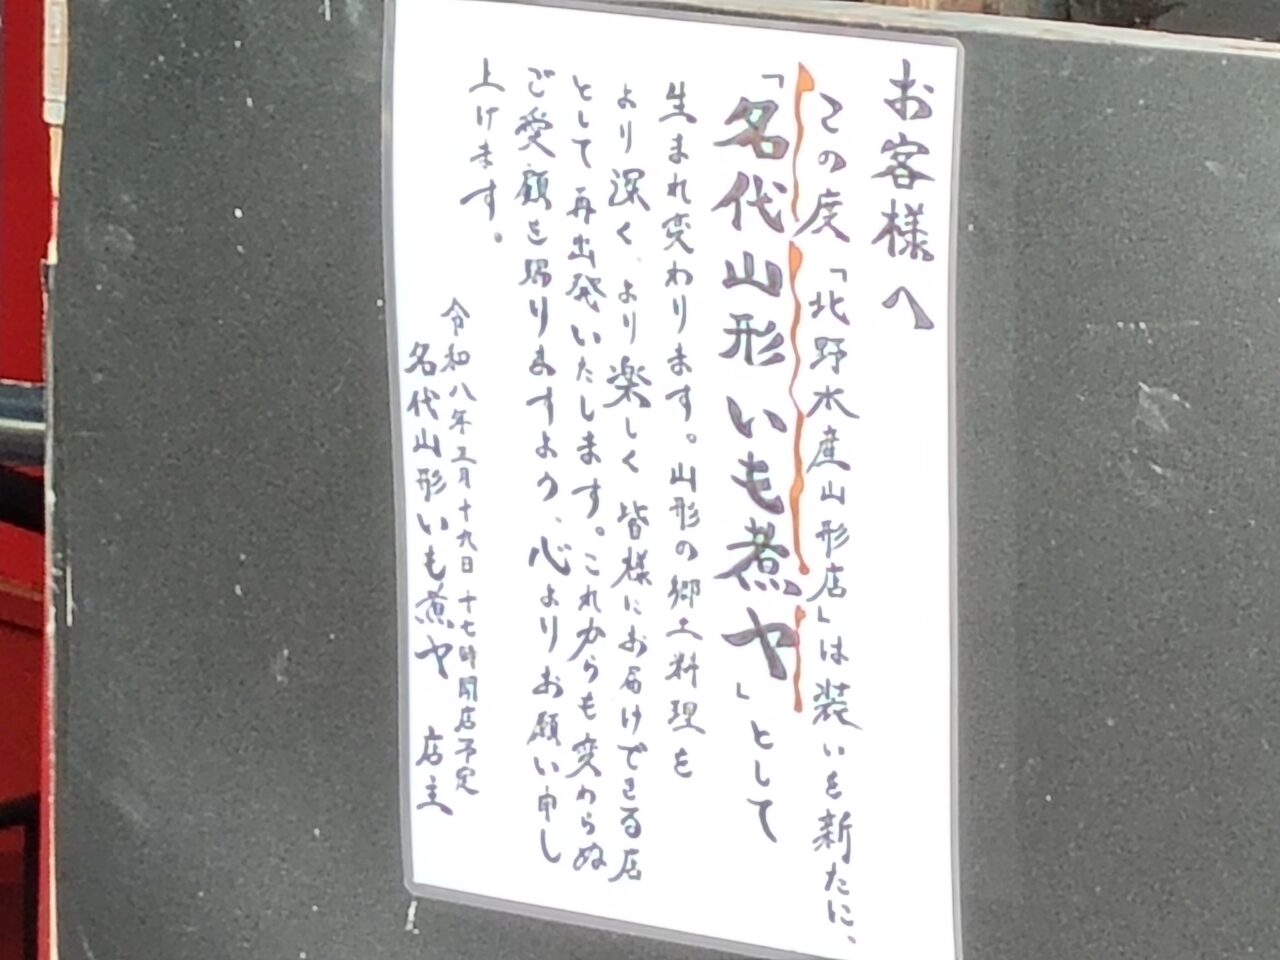 お客様へ
この度「北野水産山形店」は装いを新たに、
「名代山形いも煮ヤ」として
生まれ変わります。山形の郷土料理を
より深く、より楽しく皆様にお届けできる店
として再出発いたします。これからも変わらぬ
ご愛顧を賜りますよう、心よりお願い申し
上げます。
令和八年三月十九日 十七時開店予定
名代山形いも煮ヤ 店主